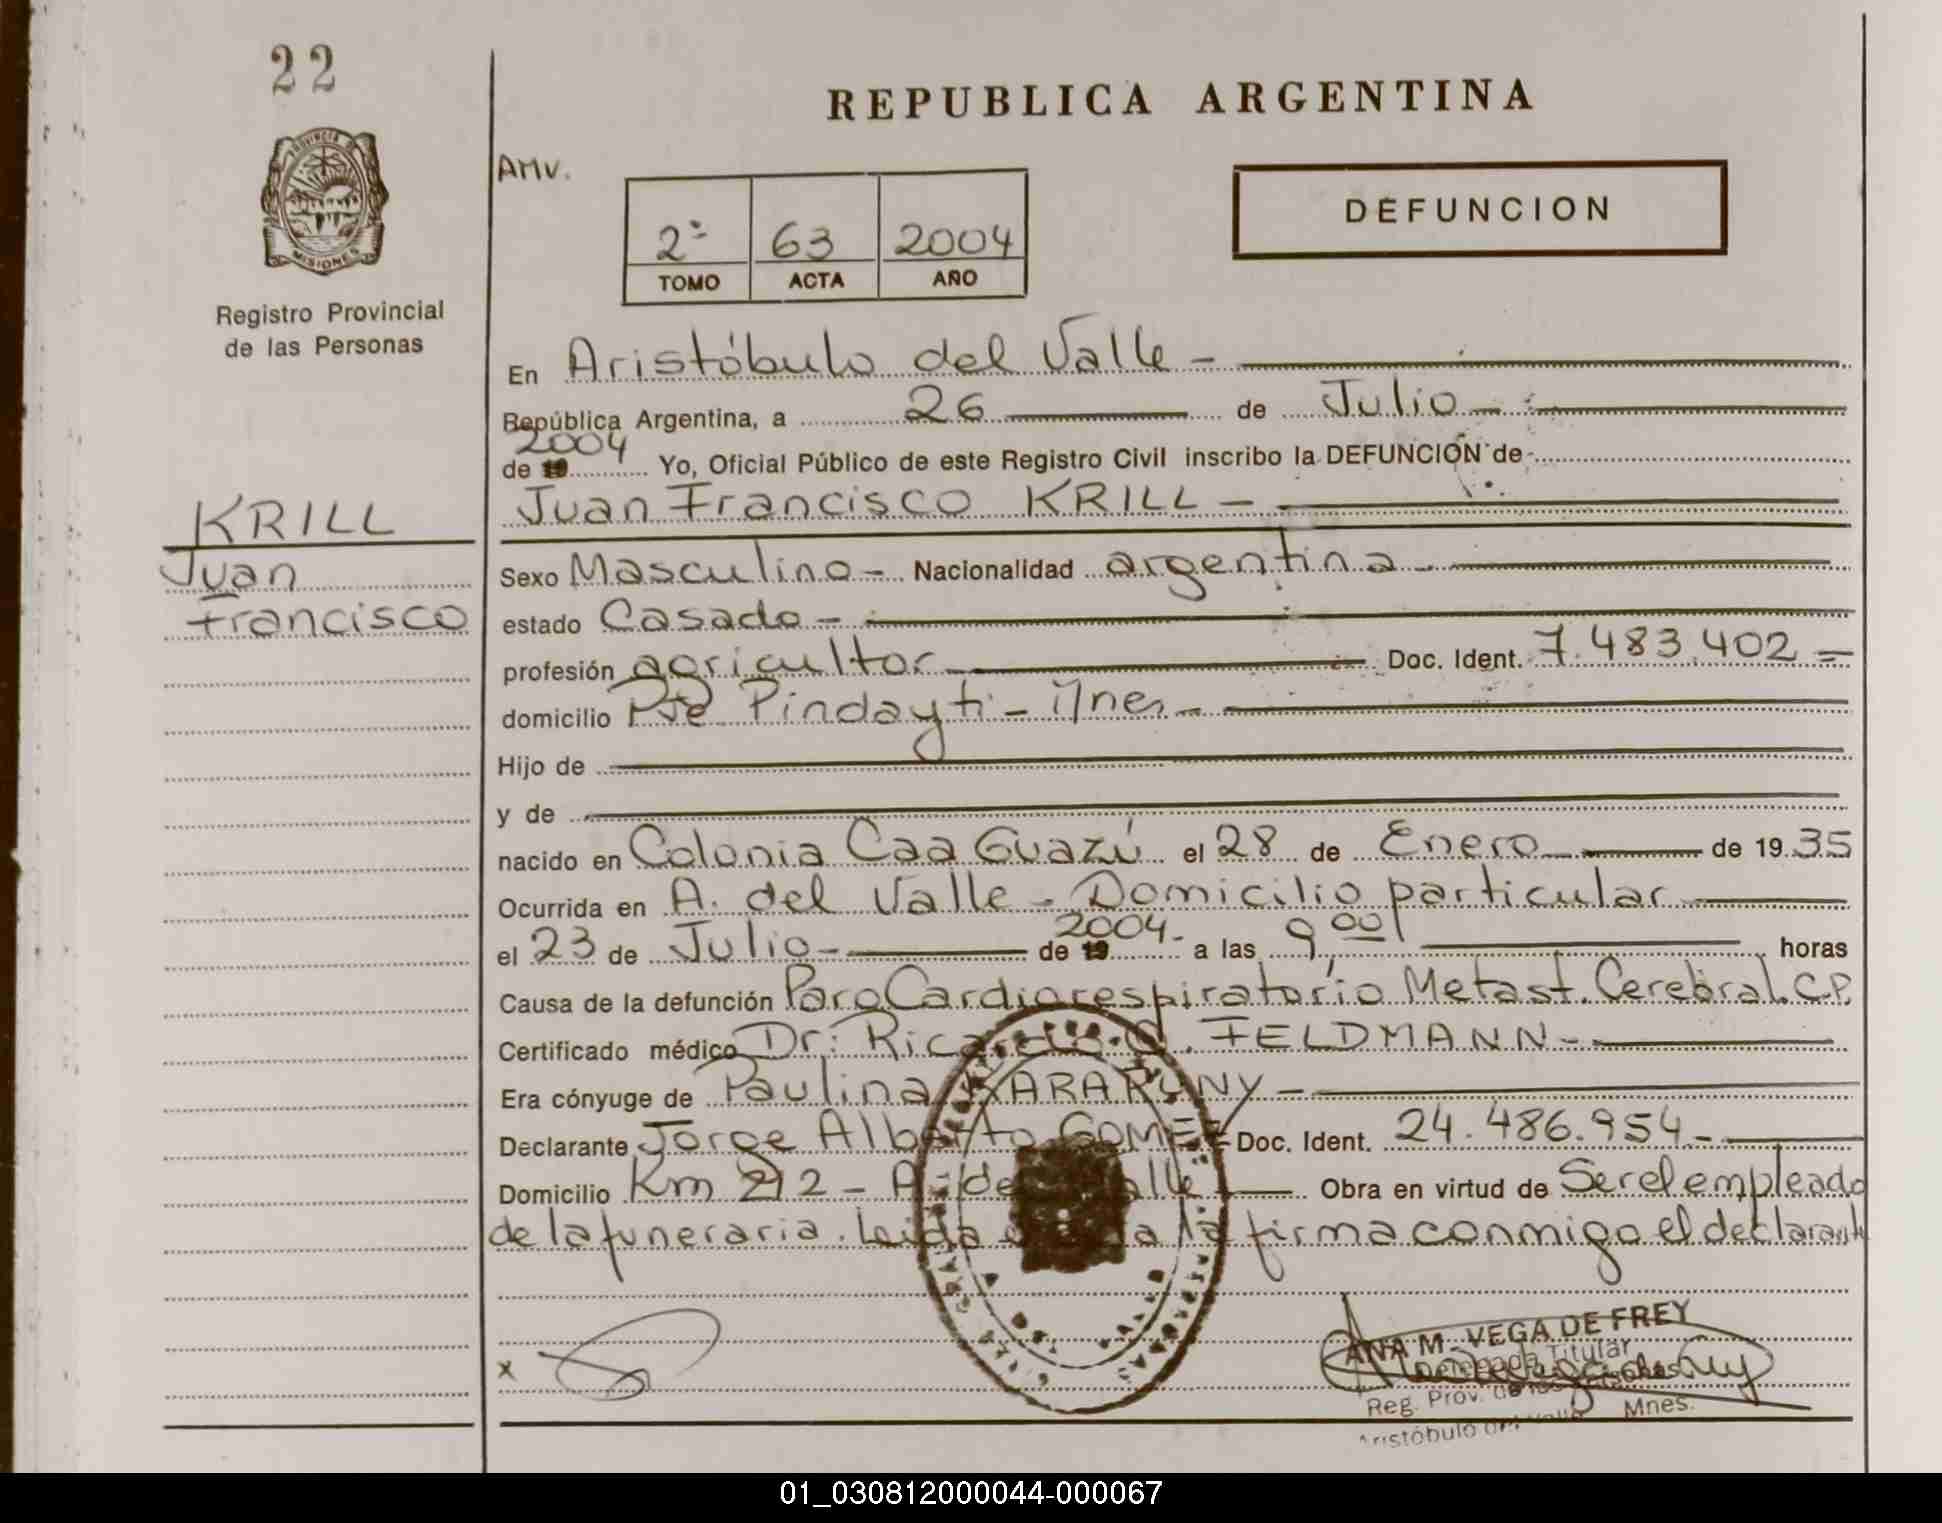 22
REPUBLICA ARGENTINA
PROVINCIA DE
MISIONES
Registro Provincial
de las Personas
AMV.
2º 63 2004
TOMO ACTA AÑO
DEFUNCION
KRILL
Juan
Francisco
En Aristóbulo del Valle -
República Argentina, a 26 de Julio
2004
de 19 Yo, Oficial Público de este Registro Civil inscribo la DEFUNCION de
Juan Francisco KRILL -
Sexo Masculino - Nacionalidad argentina
estado Casado -
profesión agricultor Doc. Ident. 7.483.402 =
domicilio Pje Pindayti -
Hijo de
y de
nacido en Colonia Caa Guazú el 28 de Enero de 1935
Ocurrida en A. del Valle - Domicilio particular
2004
el 23 de Julio - de 19 a las 9,00 horas
Causa de la defunción Paro Cardiorespiratorio Metast. Cerebral. C.P.
Certificado médico Dr. FELDMANN -
Era cónyuge de Paulina
Declarante Jorge Alberto GOMEZ Doc. Ident. 24.486.954 -
Domicilio Km 212 - A. del Valle Obra en virtud de Ser el empleado
de la funeraria. Leída la firma conmigo el declarante
x
ANA M. VEGA DE FREY
Delegada Titular
Reg. Prov. de las
Aristóbulo del Valle Mnes.
01_030812000044-000067